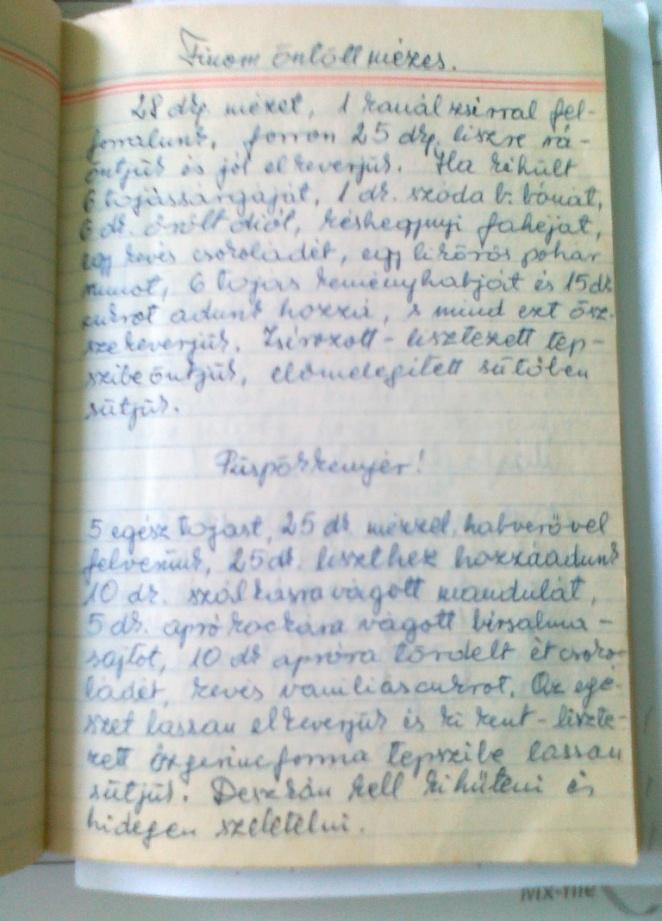 Finom öntött mézes.
28 dkg. mézet, 1 kanál zsirral fel-
forralunk, forrón 25 dkg. lisztre rá-
öntjük és jól elkeverjük. Ha kihült
6 tojássárgáját, 1 dk. szóda b. bónát,
6 dk. őrölt diót, késhegynyi fahéjat,
egy kevés csokoládét, egy likőrös pohár
rumot, 6 tojás keményhabját és 15 dk
cukrot adunk hozzá, s mind ezt ösz-
szekeverjük. Zsirozott - lisztezett tep-
szibe öntjük, előmelegitett sütőben
sütjük.
Püspökkenyér!
5 egész tojást, 25 dk mézzel, habverővel
felverünk, 25 dk. liszthez hozzáadunk
10 dk. szálkásra vágott mandulát,
5 dk. apró kockára vágott birsalma-
sajtot, 10 dk apróra tördelt ét csoko-
ládét, kevés vaniliáscukrot. Az egé-
szet lassan elkeverjük és ki kent - liszte-
zett őzgerincforma tepszibe lassan
sütjük. Deszkán kell kihüteni és
hidegen szeletelni.